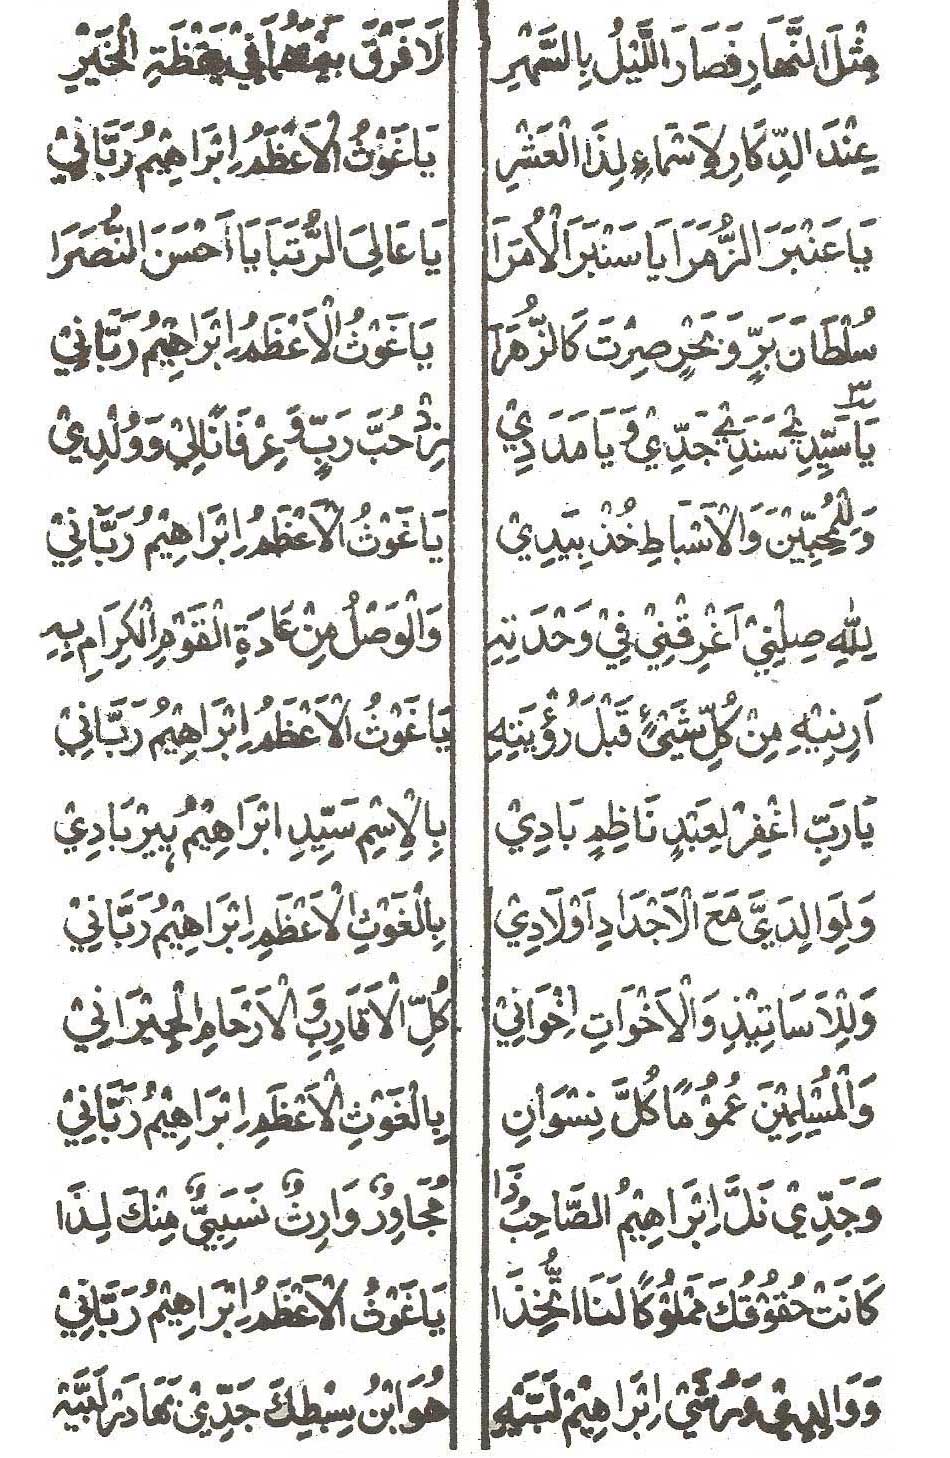 مِثْلَ النَّهَارِ فَصَارَ اللَّيْلُ بِالسَّهَرِ لَا فَرْقَ بَيْنَهُمَا فِيْ يَقْظَةِ الْخَيْرِ
عِنْدَ الدِّكَارِ لِاَسْمَاءٍ لِذَا الْعَشْرِ يَا غَوْثُ الْاَعْظَمُ اِبْرَاهِيْمُ رَبَّانِيْ
يَا عَنْبَرَ الزُّمَرَا يَا سَنْبَرَ الْاُمَرَا يَا عَالِيَ الرُّتَبَا يَا اَحْسَنَ النُّصَرَا
سُلْطَانَ بَرٍّ وَبَحْرٍ صِرْتَ كَالزُّهَرَا يَا غَوْثُ الْاَعْظَمُ اِبْرَاهِيْمُ رَبَّانِيْ
يَا سَيِّدِيْ سَنَدِيْ جَدِّيْ وَيَا مَدَدِيْ زِدْ حُبَّ رَبٍّ وَعِرْفَانًا لِيْ وَوُلْدِيْ
وَلِلْمُحِبِّيْنَ وَالْاَسْبَاطِ خُذْ بِيَدِيْ يَا غَوْثُ الْاَعْظَمُ اِبْرَاهِيْمُ رَبَّانِيْ
لِلّٰهِ صِلْنِيْ اَغْرِقْنِيْ فِيْ وَحْدَتِهِ وَالْوَصْلُ مِنْ عَادَةِ الْقَوْمِ الْكِرَامِ بِهِ
اَرِنِيْهِ مِنْ كُلِّ شَيْئٍ قَبْلَ رُؤْيَتِهِ يَا غَوْثُ الْاَعْظَمُ اِبْرَاهِيْمُ رَبَّانِيْ
يَا رَبِّ اغْفِرْ لِعَبْدٍ نَاظِمٍ بَادِيْ بِالْاِسْمِ سَيِّدِ ابْرَاهِيْمُ پِيرْ بَادِيْ
وَلِوَالِدَيَّ مَعَ الْاَجْدَادِ اَوْلَادِيْ بِالْغَوْثِ الْاَعْظَمِ اِبْرَاهِيْمُ رَبَّانِيْ
وَلِلْاَسَاتِيْذِ وَالْاَخَوَاتِ اِخْوَانِيْ كُلِّ الْاَقَارِبِ وَالْاَرْحَامِ الْجِيْرَانِيْ
وَالْمُسْلِمِيْنَ عُمُوْمًا كُلَّ نِسْوَانِ بِالْغَوْثِ الْاَعْظَمِ اِبْرَاهِيْمُ رَبَّانِيْ
وَجَدِّيْ نَلَّ اِبْرَاهِيْمُ الصَّاحِبُ ذَا مُجَاوِرٌ وَارِثٌ نَسَبِيٌّ مِنْكَ لِذَا
كَانَتْ حُقُوْقُكَ مَمْلُوْكًا لَنَا اتُّخِذَا يَا غَوْثُ الْاَعْظَمُ اِبْرَاهِيْمُ رَبَّانِيْ
وَوَالِدِيْ اِبْرَاهِيْمُ لَبَّيْهِ هُوَ ابْنُ سِبْطِكَ جَدِّيْ لَبَّيْهِ